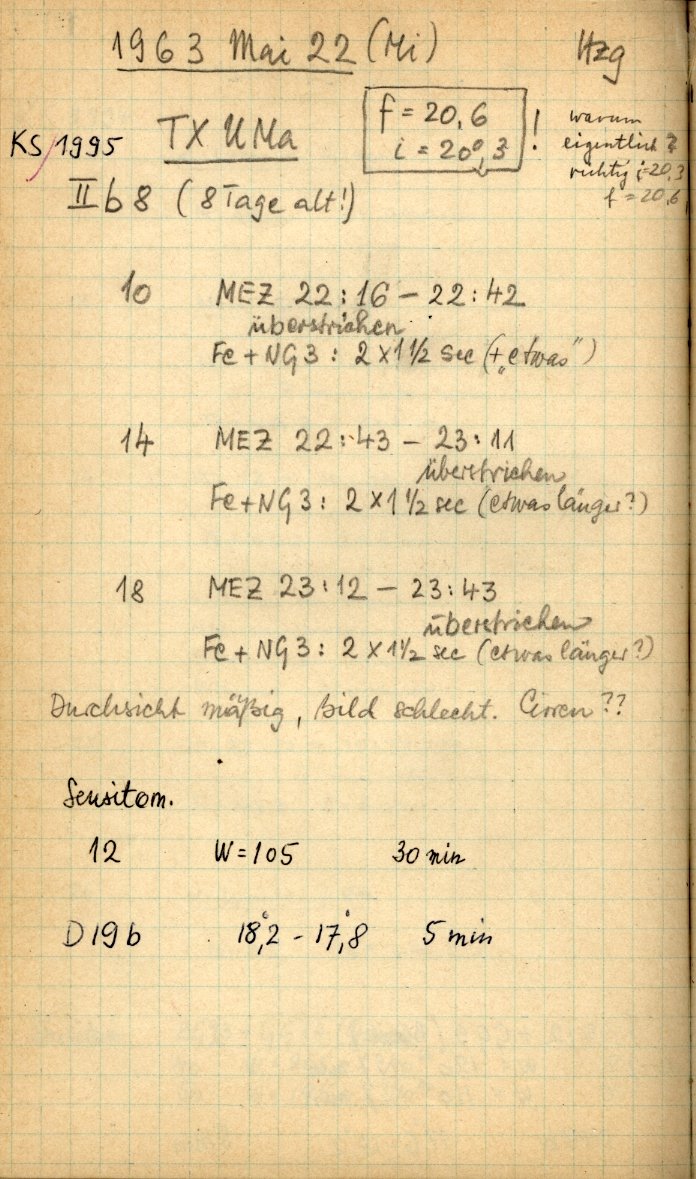 1963 Mai 22 (Mi) Hzg
f = 20,6
i = 20°,3 !
warum
eigentlich?
richtig i=20,3
f = 20,6
KS 1995 TX UMa
II b 8 (8 Tage alt!)
10 MEZ 22:16 – 22:42
überstrichen
Fe + NG 3 : 2 × 1 1/2 sec (+ „etwas")
14 MEZ 22:43 – 23:11
überstrichen
Fe + NG 3 : 2 × 1 1/2 sec (etwas länger?)
18 MEZ 23:12 – 23:43
überstrichen
Fe + NG 3 : 2 × 1 1/2 sec (etwas länger?)
Durchsicht mäßig, Bild schlecht. Cirren??
Sensitom.
12 W = 105 30 min
D 19 b 18°,2 – 17°,8 5 min